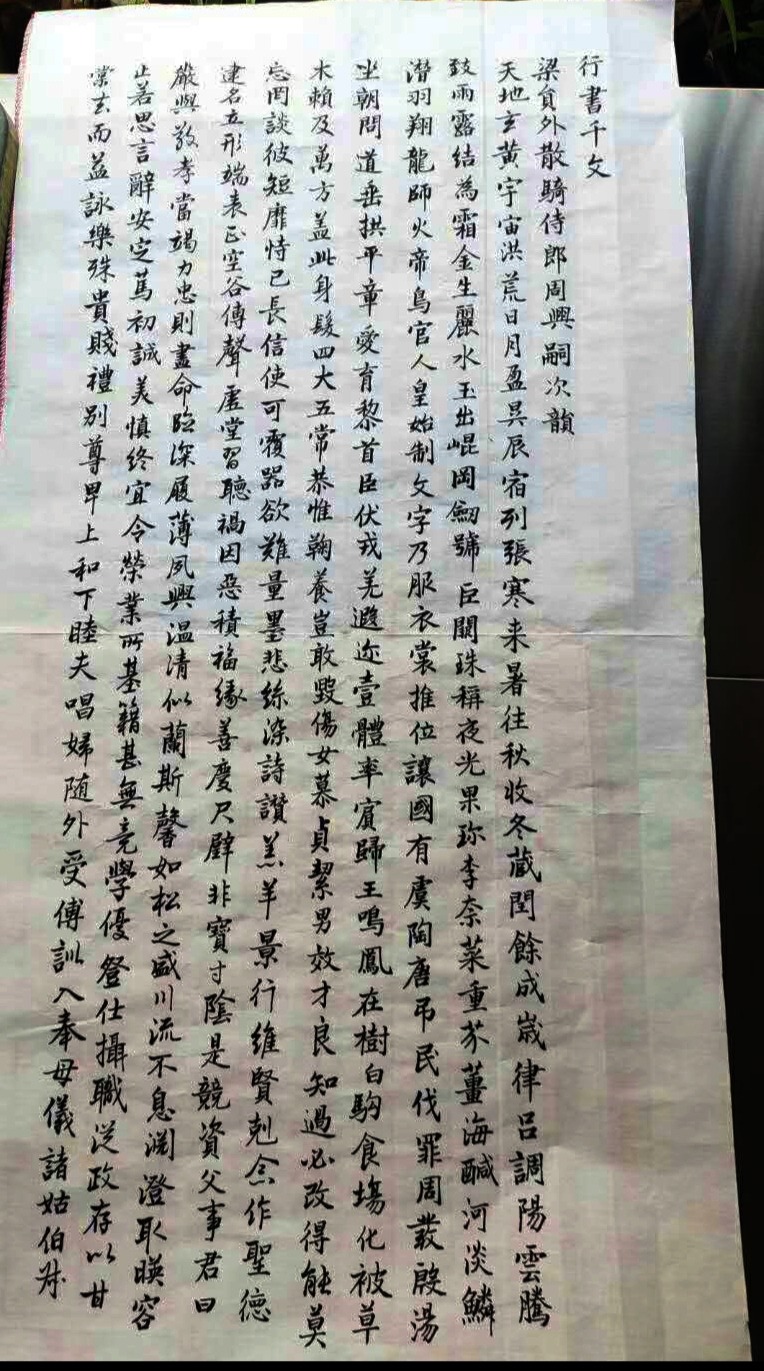 行書千文
梁貟外散騎侍郎周興嗣次韻
天地玄黃宇宙洪荒日月盈昃辰宿列張寒来暑往秋收冬藏閏餘成歲律吕調陽雲騰
致雨露結為霜金生麗水玉出崐岡劒號巨闕珠稱夜光果珎李柰菜重芥薑海鹹河淡鱗
潛羽翔龍師火帝鳥官人皇始制文字乃服衣裳推位讓國有虞陶唐吊民伐罪周發殷湯
坐朝問道垂拱平章愛育黎首臣伏戎羌遐迩壹體率賓歸王鳴鳳在樹白駒食場化被草
木賴及萬方盖此身髮四大五常恭惟鞠養豈敢毀傷女慕貞絜男效才良知過必改得能莫
忘罔談彼短靡恃己長信使可覆器欲難量墨悲絲染詩讚羔羊景行維賢剋念作聖德
建名立形端表正空谷傳聲虛堂習聽禍因惡積福緣善慶尺璧非寶寸陰是競資父事君曰
嚴與敬孝當竭力忠則盡命臨深履薄夙興溫凊似蘭斯馨如松之盛川流不息淵澄取暎容
止若思言辭安定萬初誠美慎終宜令榮業所基籍甚無竟學優登仕攝職從政存以甘
棠去而益詠樂殊貴賤禮別尊卑上和下睦夫唱婦随外受傅訓入奉母儀諸姑伯叔